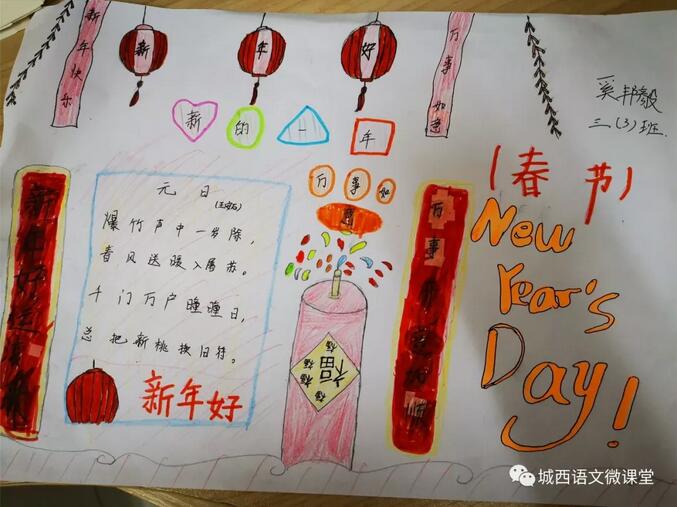 新年快乐
新年好
万事如意
奚邦毅
三(3)班
新的一年
万事如意
(春节)
New
Year's
Day!
元日
(王安石)
爆竹声中一岁除,
春风送暖入屠苏。
千门万户曈曈日,
总把新桃换旧符。
新年好
福
福
福
福
新年好运
万事
城西语文微课堂